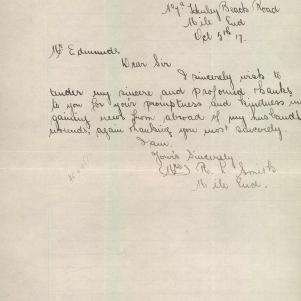 Beach Road
Mile End
Oct 5th 17.
Mr Edmunds
Dear Sir
I sincerely wish to
tender my sincere and profound thanks
to you for your promptness and kindness in
gaining news from abroad of my husbands
wounds, again thanking you most sincerely.
I am.
Yours Sincerely
(Mrs) R. L. Smith
Mile End.